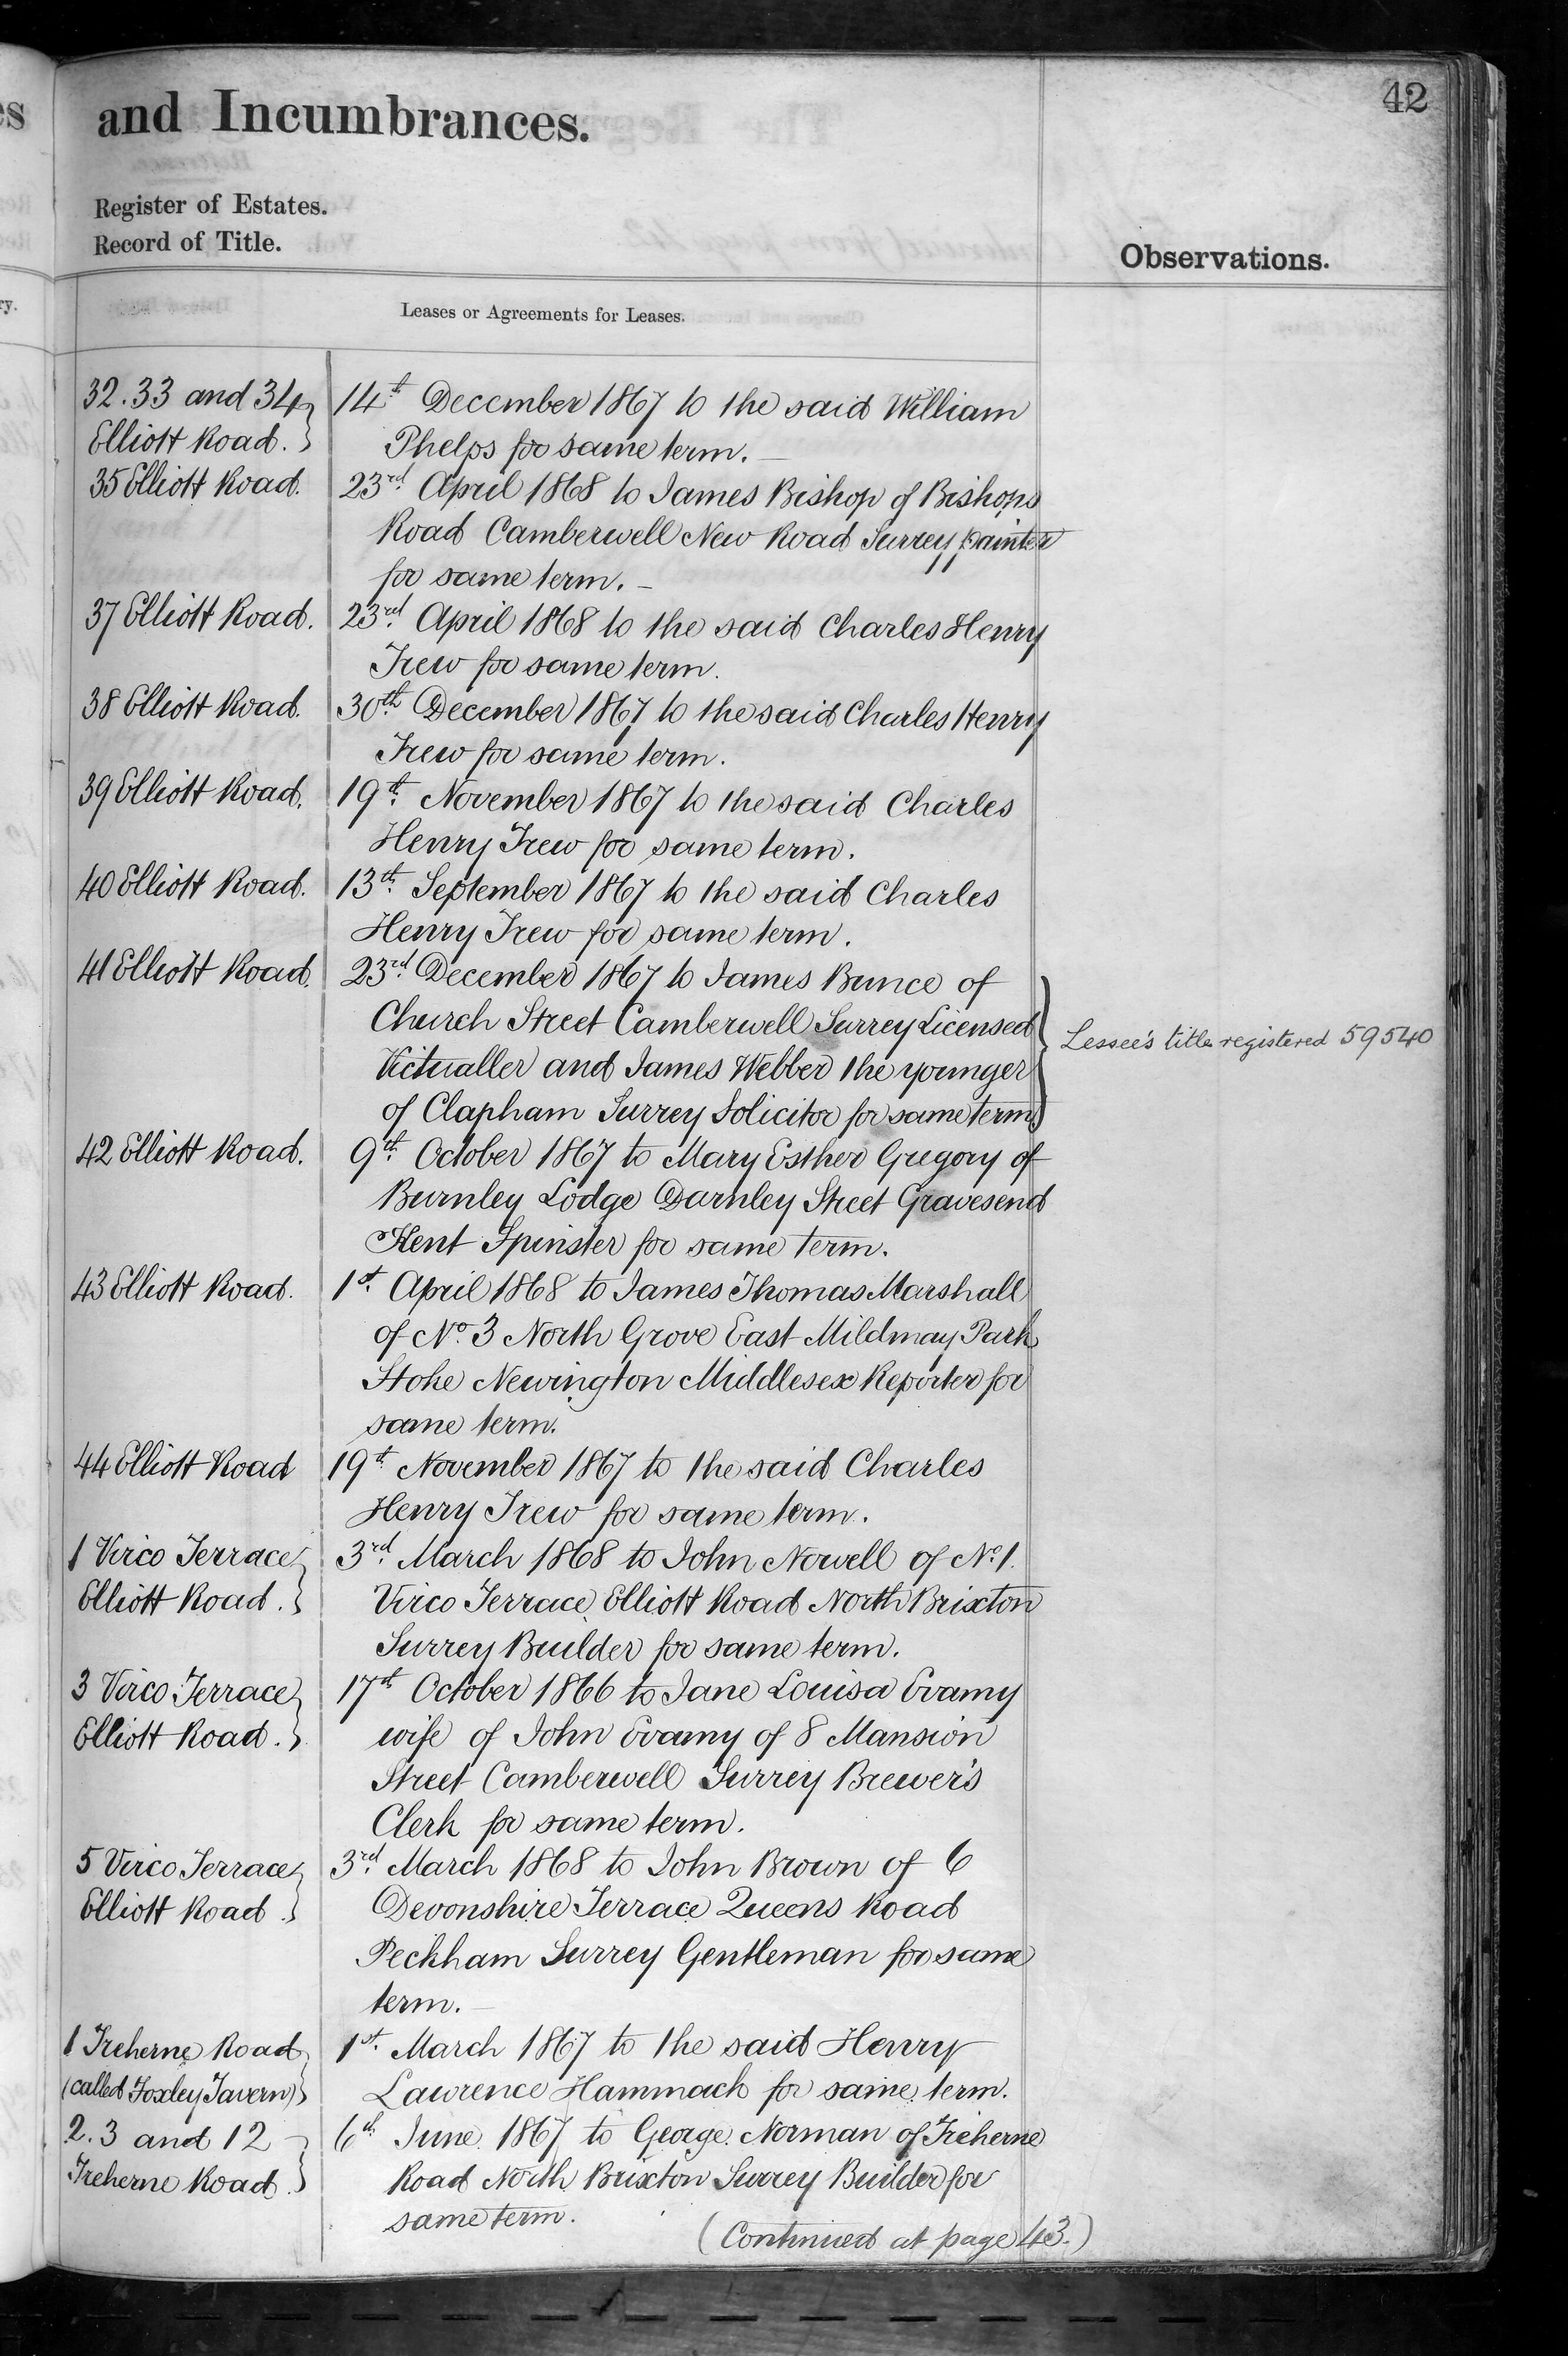 42
and Incumbrances.
Register of Estates.
Record of Title.
Observations.
Leases or Agreements for Leases.
32. 33 and 34 14th December 1867 to the said William
Elliott Road. Phelps for same term.
35 Elliott Road. 23rd April 1868 to James Bishop of Bishops
Road Camberwell New Road Surrey Painter
for same term.
37 Elliott Road. 23rd April 1868 to the said Charles Henry
Trew for same term.
38 Elliott Road. 30th December 1867 to the said Charles Henry
Trew for same term.
39 Elliott Road. 19th November 1867 to the said Charles
Henry Trew for same term.
40 Elliott Road. 13th September 1867 to the said Charles
Henry Trew for same term.
41 Elliott Road. 23rd December 1867 to James Bunce of
Church Street Camberwell Surrey Licensed
Lessee's title registered 59540
Victualler and James Webber the younger
of Clapham Surrey Solicitor for same term.
42 Elliott Road. 9th October 1867 to Mary Esther Gregory of
Burnley Lodge Darnley Street Gravesend
Kent Spinster for same term.
43 Elliott Road. 1st April 1868 to James Thomas Marshall
of No. 3 North Grove East Mildmay Park
Stoke Newington Middlesex Reporter for
same term.
44 Elliott Road 19th November 1867 to the said Charles
Henry Trew for same term.
1 Virco Terrace 3rd March 1868 to John Nowell of No. 1.
Elliott Road. Virco Terrace Elliott Road North Brixton
Surrey Builder for same term.
3 Virco Terrace 17th October 1866 to Jane Louisa Evamy
Elliott Road. wife of John Evamy of 8 Mansion
Street Camberwell Surrey Brewer's
Clerk for same term.
5 Virco Terrace 3rd March 1868 to John Brown of 6
Elliott Road. Devonshire Terrace Queens Road
Peckham Surrey Gentleman for same
term.
1 Treherne Road 1st March 1867 to the said Henry
(called Foxley Tavern) Lawrence Hammack for same term.
2. 3 and 12 6th June 1867 to George Norman of Treherne
Treherne Road. Road North Brixton Surrey Builder for
same term.
(Continued at page 43.)